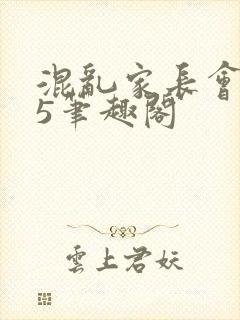 混亂家長會
5筆趣閣
雲上君妖